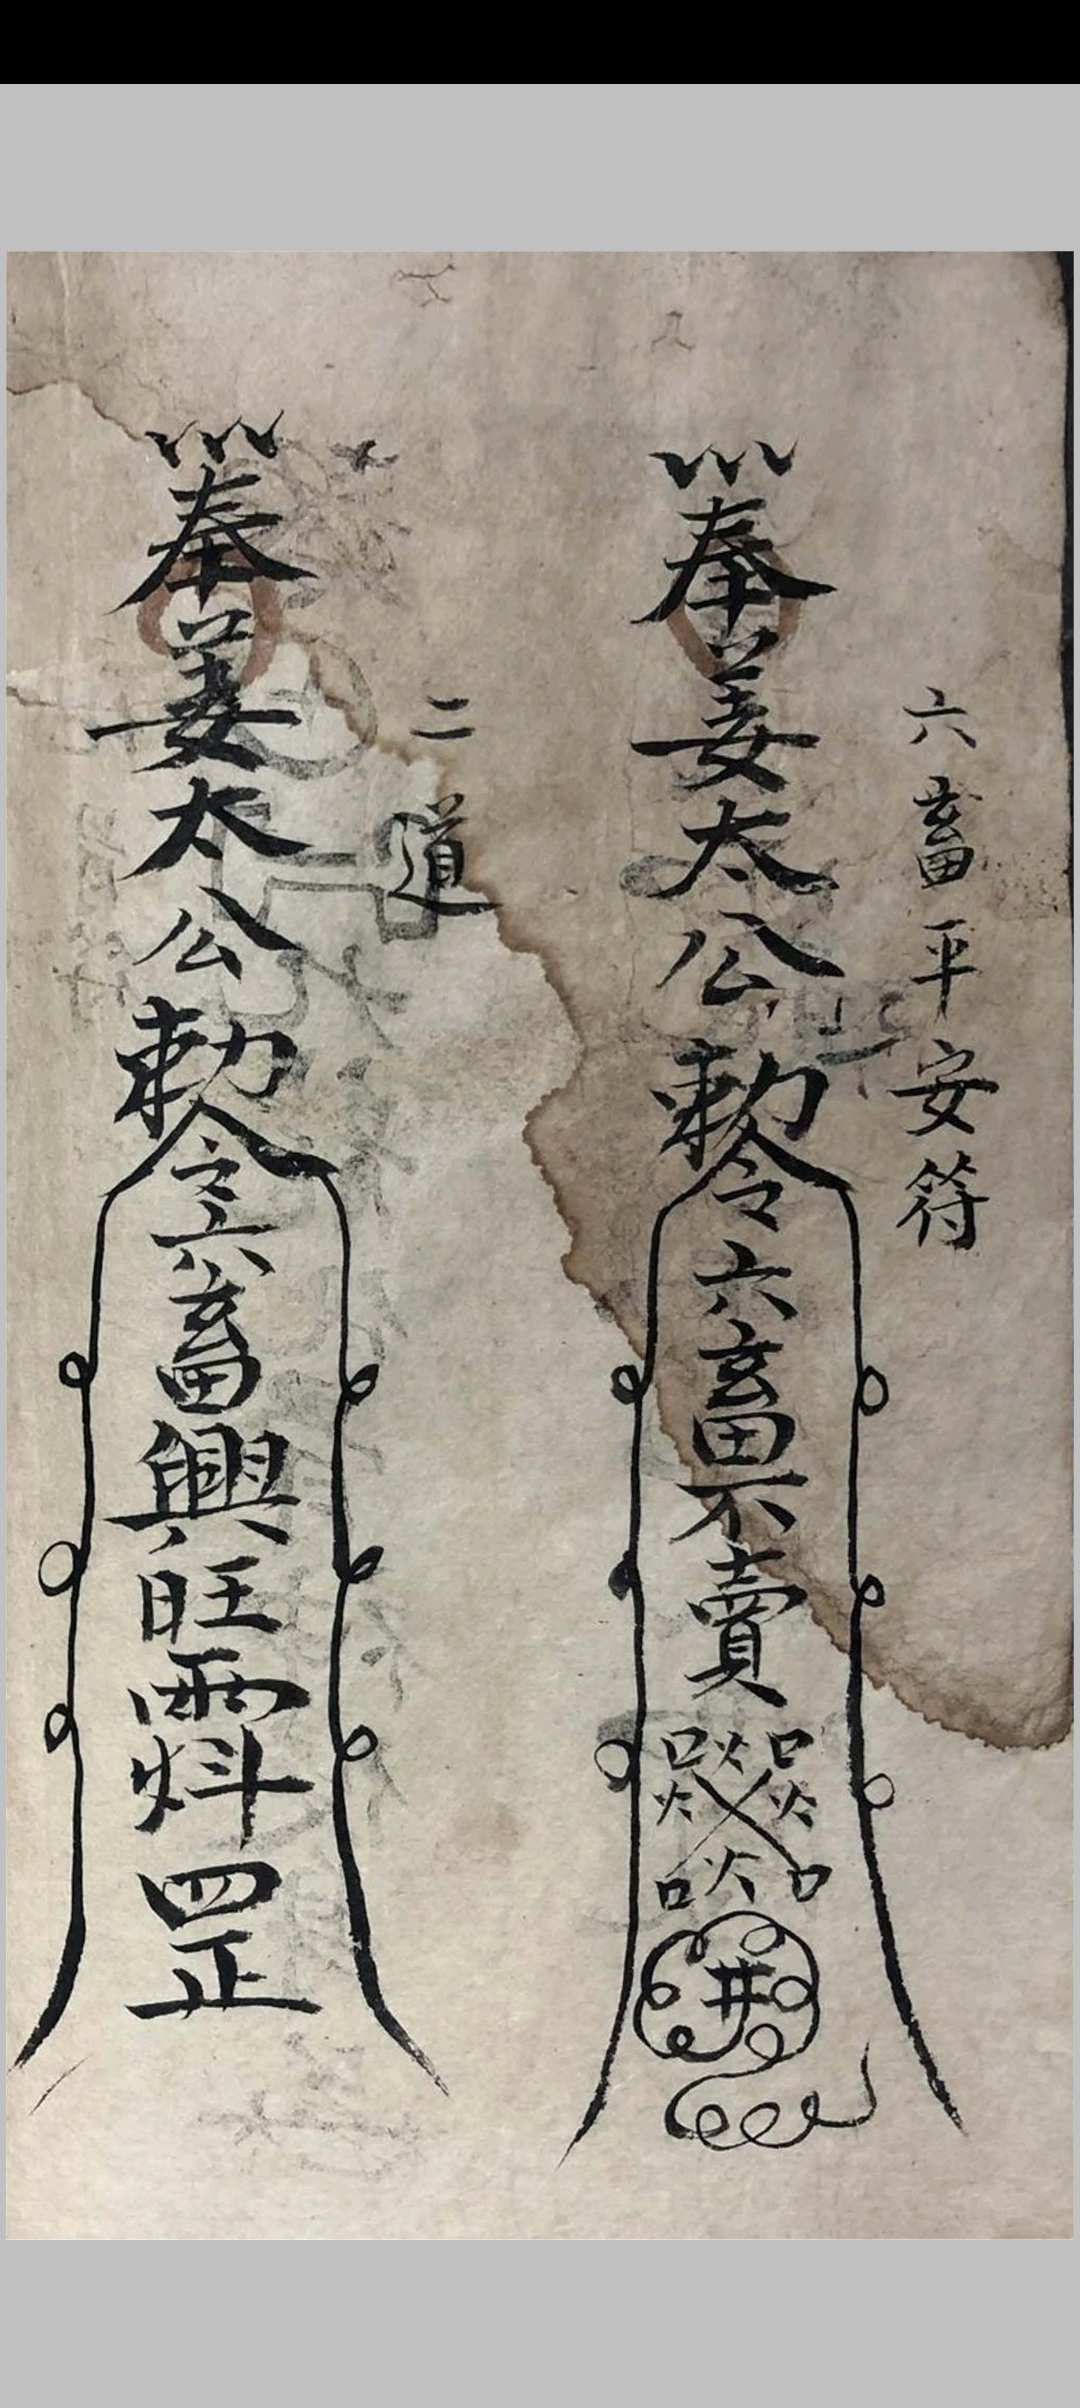 六畜平安符
奉姜太公勅令六畜不賣
井
二道
奉姜太公勅令六畜興旺
罡